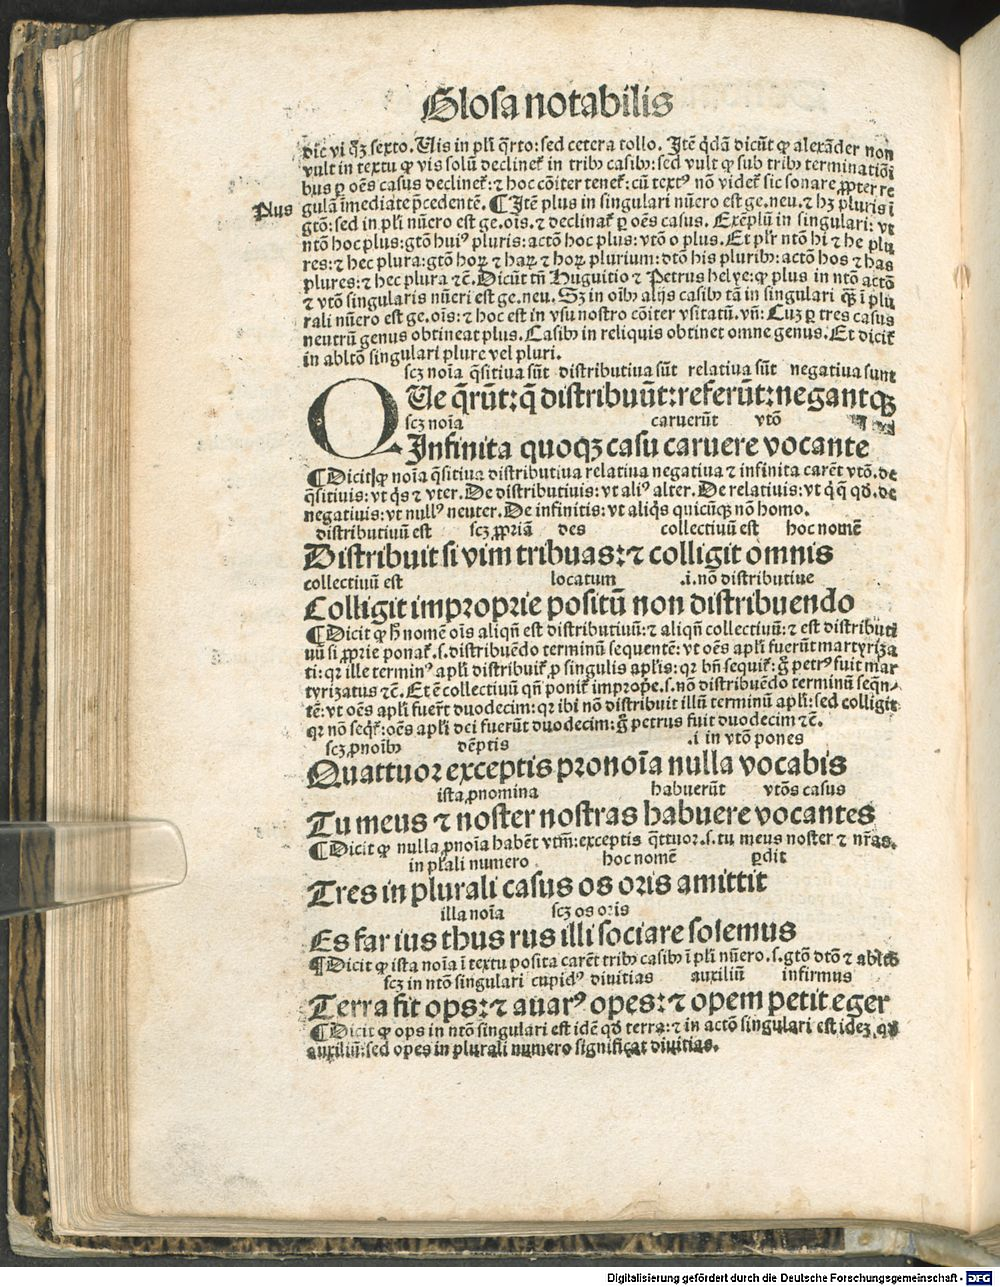 Glosa notabilis
dic vi q̄ꝫ sexto. Uis in pl̄i q̄rto: sed cetera tollo. Itē q̄dā dicūt ꝙ alexāder non
vult in textu ꝙ vis solū declinet̄ in tribꝰ casibꝰ: sed vult ꝙ sub tribꝰ terminatiōi
bus ꝑ oēs casus declinet̄: ⁊ hoc cōiter tenet̄: cū textꝰ nō videt̄ sic sonare ꝓpter re
Plus
gulā īmediate p̄cedentē. ¶ Itē plus in singulari nūero est ge. neu. ⁊ hꝫ pluris ī
gtō: sed in pl̄i nūero est ge. oīs. ⁊ declinat̄ ꝑ oēs casus. Exēplū in singulari: vt
ntō hoc plus: gtō huiꝰ pluris: actō hoc plus: vtō o plus. Et pl̄r ntō hi ⁊ he plu
res: ⁊ hec plura: gtō hoꝝ ⁊ haꝝ ⁊ hoꝝ plurium: dtō his pluribꝰ: actō hos ⁊ has
plures: ⁊ hec plura ⁊c̄. Dicūt tn̄ Huguitio ⁊ Petrus helye: ꝙ plus in ntō actō
⁊ vtō singularis nūeri est ge. neu. Sꝫ in oībꝰ alijs casibꝰ tā in singulari q̄ꝫ ī plu
rali nūero est ge. oīs: ⁊ hoc est in vsu nostro cōiter vsitatū. vn̄: Cuꝫ ꝑ tres casus
neutrū genus obtineat plus. Casibꝰ in reliquis obtinet omne genus. Et dicit̄
in abltō singulari plure vel pluri.
scꝫ noīa q̄sitiua sūt distributiua sūt relatiua sūt negatiua sunt
QUe q̄rūt: q̄ distribuūt: referūt: negantqꝫ
scꝫ noīa caruerūt vtō
Infinita quoqꝫ casu caruere vocante
¶ Dicit ꝙ noīa q̄sitiua distributiua relatiua negatiua ⁊ infinita carēt vtō. de
q̄sitiuis: vt q̄s ⁊ vter. De distributiuis: vt aliꝰ alter. De relatiuis: vt q̄ q̄ qđ. de
negatiuis: vt nullꝰ neuter. De infinitis: vt aliq̄s quicūqꝫ nō homo.
distributiuū est scꝫ ꝓpriā des collectiuū est hoc nomē
Distribuit si vim tribuas: ⁊ colligit omnis
collectiuū est locatum .i. nō distributiue
Colligit improprie positū non distribuendo
¶ Dicit ꝙ h̄ nomē oīs aliqn̄ est distributiuū: ⁊ aliqn̄ collectiuū: ⁊ est distributi
uū si ꝓprie ponat̄. s. distribuēdo terminū sequentē: vt oēs apl̄i fuerūt martyriza
ti: qr ille terminꝰ apl̄i distribuit̄ ꝓ singulis apl̄is: qr bn̄ sequit̄: g̊ petrꝰ fuit mar
tyrizatus ⁊c̄. Et ē collectiuū qn̄ ponit̄ improp̄e. s. nō distribuēdo terminū seq̄n⸗
tē: vt oēs apl̄i fuer̄t duodecim: qr ibi nō distribuit illū terminū apl̄i: sed colligit
qr nō seqt̄: oēs apl̄i dei fuerūt duodecim: g̊ petrus fuit duodecim ⁊c̄.
scꝫ ꝓnoībꝰ dēptis .i in vtō pones
Quattuor exceptis pronoīa nulla vocabis
ista ꝓnomina habuerūt vtōs casus
Tu meus ⁊ noster nostras habuere vocantes
¶ Dicit ꝙ nulla ꝓnoīa habēt vtm̄: exceptis q̄ttuor. s. tu meus noster ⁊ nr̄as.
in pl̄ali numero hoc nomē ꝑdit
Tres in plurali casus os oris amittit
illa noīa scꝫ os oris
Es far ius thus rus illi sociare solemus
¶ Dicit ꝙ ista noīa ī textu posita carēt tribꝰ casibꝰ ī pl̄i nūero. s. gtō dtō ⁊ abltō
scꝫ in ntō singulari cupidꝰ diuitias auxiliū infirmus
Terra fit ops: ⁊ auarꝰ opes: ⁊ opem petit eger
¶ Dicit ꝙ ops in ntō singulari est idē qđ terra: ⁊ in actō singulari est ideꝫ qđ
auxiliū: sed opes in plurali numero significat diuitias.
Digitalisierung gefördert durch die Deutsche Forschungsgemeinschaft - DFG